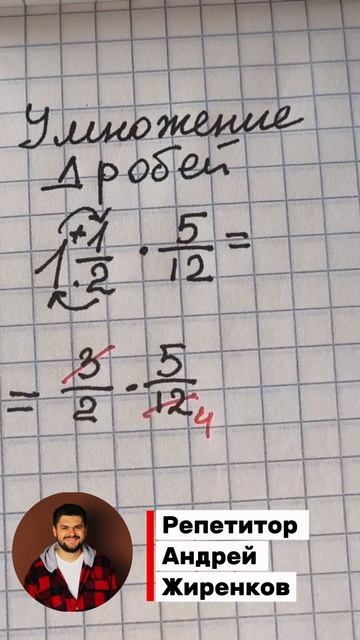 Умножение
Дробей
1 1/2 · 5/12 =
= 3/2 · 5/12 4
Репетитор
Андрей
Жиренков